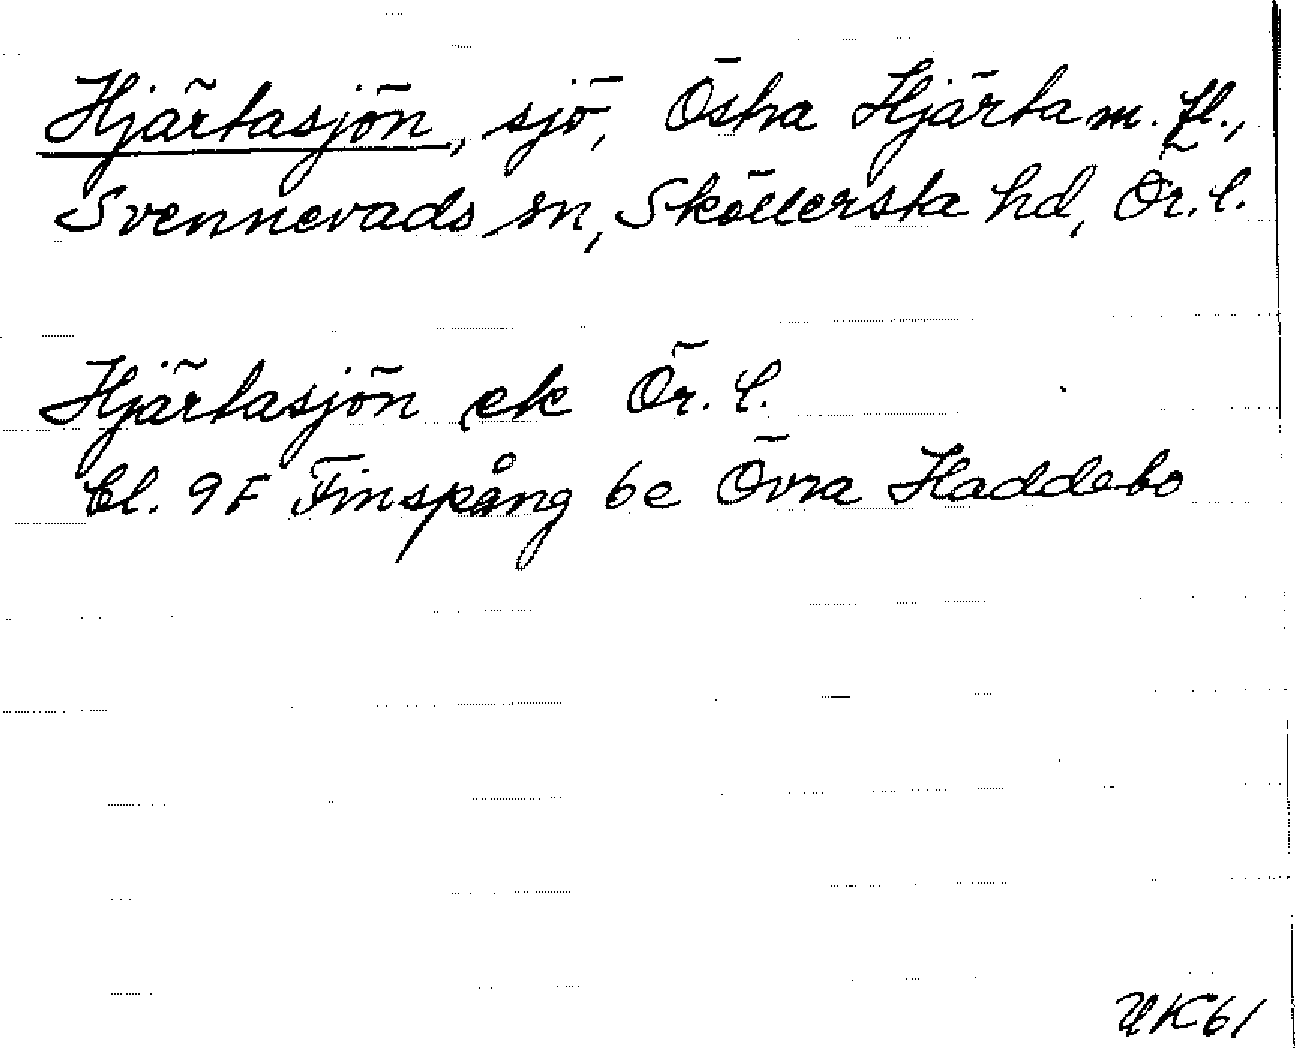 Hjärtasjön, sjö, Östra Hjärta m. fl.,
Svennevads sn, Sköllersta hd, Ör. l.
Hjärtasjön ek Ör. l.
bl. 9F Finspång 6e Övra Haddebo
UK61